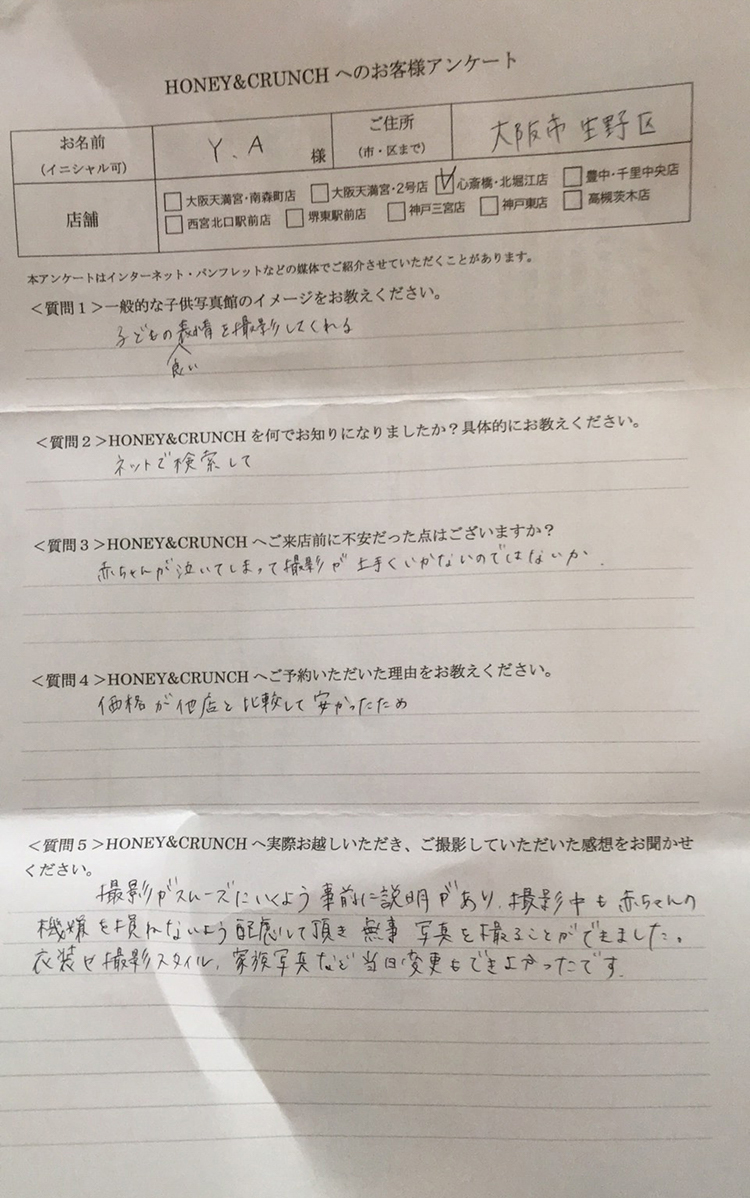 HONEY&CRUNCH へのお客様アンケート
お名前 (イニシャル可) Y.A 様 ご住所 (市・区まで) 大阪市 生野区
店舗 □大阪天満宮・南森町店 □大阪天満宮・2号店 ☑心斎橋・北堀江店 □豊中・千里中央店
□西宮北口駅前店 □堺東駅前店 □神戸三宮店 □神戸東店 □高槻茨木店
本アンケートはインターネット・パンフレットなどの媒体でご紹介させていただくことがあります。
<質問1>一般的な子供写真館のイメージをお教えください。
子どもの表情を撮影してくれる
良い
<質問2>HONEY&CRUNCH を何でお知りになりましたか?具体的にお教えください。
ネットで検索して
<質問3>HONEY&CRUNCH へご来店前に不安だった点はございますか?
赤ちゃんが泣いてしまって撮影が上手くいかないのではないか.
<質問4>HONEY&CRUNCH へご予約いただいた理由をお教えください。
価格が他店と比較して安かったため
<質問5>HONEY&CRUNCH へ実際お越しいただき、ご撮影していただいた感想をお聞かせ
ください。
撮影がスムーズにいくよう事前に説明があり、撮影中も赤ちゃんの
機嫌を損ねないよう配慮して頂き無事 写真を撮ることができました。
衣装や撮影スタイル、家族写真など当日変更もできよかったです.